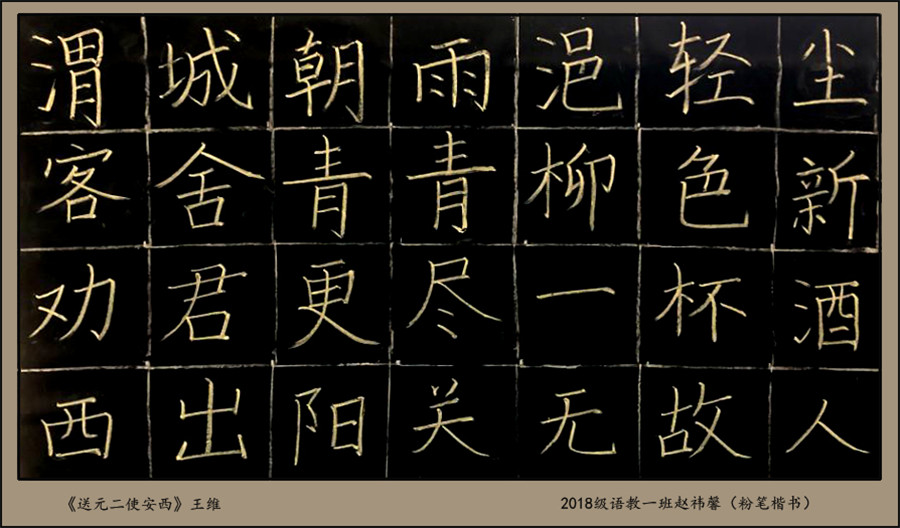 渭城朝雨浥轻尘
客舍青青柳色新
劝君更尽一杯酒
西出阳关无故人
《送元二使安西》王维
2018级语教一班赵祎馨（粉笔楷书）